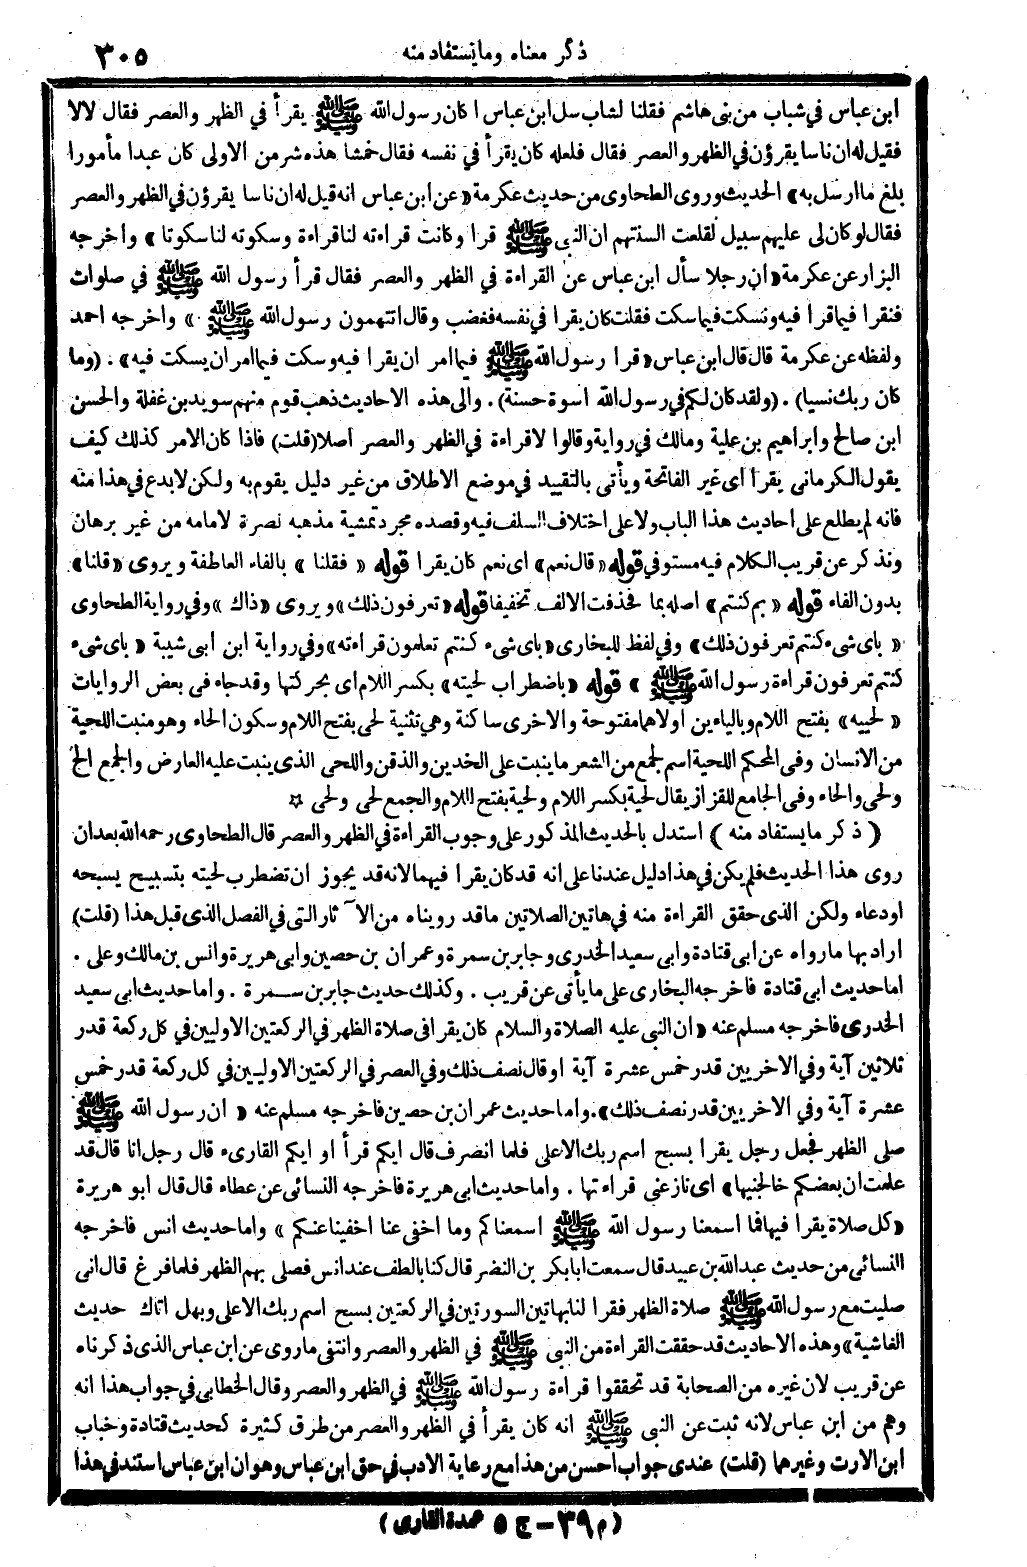 ذكر معناه وما يستفاد منه ٣٠٥
ابن عباس في شباب من بنى هاشم فقلنا لشاب سل ابن عباس ا كان رسول الله ﷺ يقرأ في الظهر والعصر فقال لا لا
فقيل له ان ناسا يقرؤن في الظهر والعصر فقال فلعله كان يقرأ في نفسه فقال خمشا هذه شر من الاولى كان عبدا مأمورا
بلغ ما ارسل به» الحديث وروى الطحاوى من حديث عكرمة «عن ابن عباس انه قيل له ان ناسا يقرؤن في الظهر والعصر
فقال لو كان لى عليهم سبيل لقلعت السنتهم ان النبى ﷺ قرا وكانت قراءته لنا قراءة وسكوته لنا سكوتا» واخرجه
البزار عن عكرمة «ان رجلا سأل ابن عباس عن القراءة في الظهر والعصر فقال قرأ رسول الله ﷺ في صلوات
فنقرا فيما قرا فيه ونسكت فيما سكت فقلت كان يقرا في نفسه فغضب وقال اتتهمون رسول الله ﷺ» واخرجه احمد
ولفظه عن عكرمة قال قال ابن عباس «قرا رسول الله ﷺ فيما امر ان يقرا فيه وسكت فيما امر ان يسكت فيه» . (وما
كان ربك نسيا) . (ولقد كان لكم في رسول الله اسوة حسنة) . والى هذه الاحاديث ذهب قوم منهم سويد بن غفلة والحسن
ابن صالح وابراهيم بن علية ومالك في رواية وقالوا لا قراءة في الظهر والعصر اصلا (قلت) فاذا كان الامر كذلك كيف
يقول الكرمانى يقرا اى غير الفاتحة ويأتى بالتقييد في موضع الاطلاق من غير دليل يقوم به ولكن لا بدع في هذا منه
فانه لم يطلع على احاديث هذا الباب ولا على اختلاف السلف فيه وقصده مجرد تمشية مذهبه نصرة لامامه من غير برهان
ونذكر عن قريب الكلام فيه مستوفي قوله «قال نعم» اى نعم كان يقرا قوله « فقلنا » بالفاء العاطفة ويروى «قلنا»
بدون الفاء قوله « بم كنتم» اصله بما فحذفت الالف تخفيفا قوله «تعرفون ذلك» ويروى «ذاك» وفي رواية الطحاوى
« باى شىء كنتم تعرفون ذلك» وفي لفظ للبخارى «باى شىء كنتم تعلمون قراءته» وفي رواية ابن ابى شيبة « باى شىء
كنتم تعرفون قراءة رسول الله ﷺ » قوله «باضطراب لحيته» بكسر اللام اى بحركتها وقد جاء فى بعض الروايات
« لحييه» بفتح اللام وبالياءين اولاهما مفتوحة والاخرى ساكنة وهى تثنية لحى بفتح اللام وسكون الحاء وهو منبت اللحية
من الانسان وفى المحكم اللحية اسم لجمع من الشعر ما ينبت على الخدين والذقن واللحى الذى ينبت عليه العارض والجمع الح
ولحى والحاء وفى الجامع للقزاز يقال لحية بكسر اللام ولحية بفتح اللام والجمع لحى ولحى ☆
( ذكر ما يستفاد منه ) استدل بالحديث المذكور على وجوب القراءة في الظهر والعصر قال الطحاوى رحمه الله بعد ان
روى هذا الحديث فلم يكن في هذا دليل عندنا على انه قد كان يقرا فيهما لانه قد يجوز ان تضطرب لحيته بتسبيح يسبحه
او دعاء ولكن الذى حقق القراءة منه في هاتين الصلاتين ما قد رويناه من الآثار التى في الفصل الذى قبل هذا (قلت)
اراد بها ما رواه عن ابى قتادة وابى سعيد الخدرى وجابر بن سمرة وعمران بن حصين وابى هريرة وانس بن مالك وعلى .
اما حديث ابى قتادة فاخرجه البخارى على ما يأتى عن قريب . وكذلك حديث جابر بن سمرة . واما حديث ابى سعيد
الخدرى فاخرجه مسلم عنه «ان النبى عليه الصلاة والسلام كان يقرا فى صلاة الظهر في الركعتين الاوليين في كل ركعة قدر
ثلاثين آية وفي الاخريين قدر خمس عشرة آية او قال نصف ذلك وفي العصر في الركعتين الاوليين في كل ركعة قدر خمس
عشرة آية وفي الاخريين قدر نصف ذلك». واما حديث عمران بن حصين فاخرجه مسلم عنه « ان رسول الله ﷺ
صلى الظهر فجعل رجل يقرا بسبح اسم ربك الاعلى فلما انصرف قال ايكم قرأ او ايكم القارىء قال رجل انا قال قد
علمت ان بعضكم خالجنيها» اى نازعنى قراءتها . واما حديث ابى هريرة فاخرجه النسائى عن عطاء قال قال ابو هريرة
«كل صلاة يقرا فيها فما اسمعنا رسول الله ﷺ اسمعناكم وما اخفى عنا اخفينا عنكم » واما حديث انس فاخرجه
النسائى من حديث عبد الله بن عبيد قال سمعت ابا بكر بن النضر قال كنا بالطف عند انس فصلى بهم الظهر فلما فرغ قال انى
صليت مع رسول الله ﷺ صلاة الظهر فقرا لنا بهاتين السورتين في الركعتين بسبح اسم ربك الاعلى وبهل اتاك حديث
الغاشية» وهذه الاحاديث قد حققت القراءة من النبى ﷺ في الظهر والعصر وانتفى ما روى عن ابن عباس الذى ذكرناه
عن قريب لان غيره من الصحابة قد تحققوا قراءة رسول الله ﷺ في الظهر والعصر وقال الخطابى في جواب هذا انه
وهم من ابن عباس لانه ثبت عن النبى ﷺ انه كان يقرأ في الظهر والعصر من طرق كثيرة كحديث قتادة وخباب
ابن الارت وغيرهما (قلت) عندى جواب احسن من هذا مع رعاية الادب في حق ابن عباس وهو ان ابن عباس استند في هذا
( م ٣٩ – ج ٥ عمدة القارى )